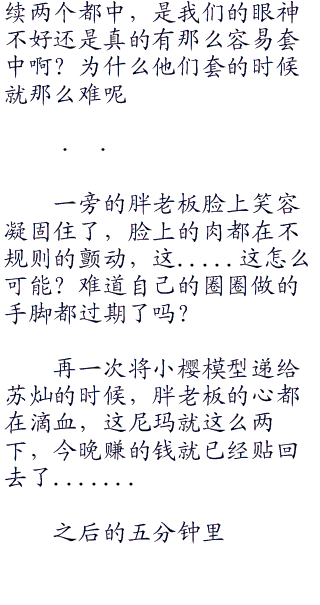 续两个都中，是我们的眼神
不好还是真的有那么容易套
中啊？为什么他们套的时候
就那么难呢
．．
一旁的胖老板脸上笑容
凝固住了，脸上的肉都在不
规则的颤动，这.....这怎么
可能？难道自己的圈圈做的
手脚都过期了吗？
再一次将小樱模型递给
苏灿的时候，胖老板的心都
在滴血，这尼玛就这么两
下，今晚赚的钱就已经贴回
去了.......
之后的五分钟里